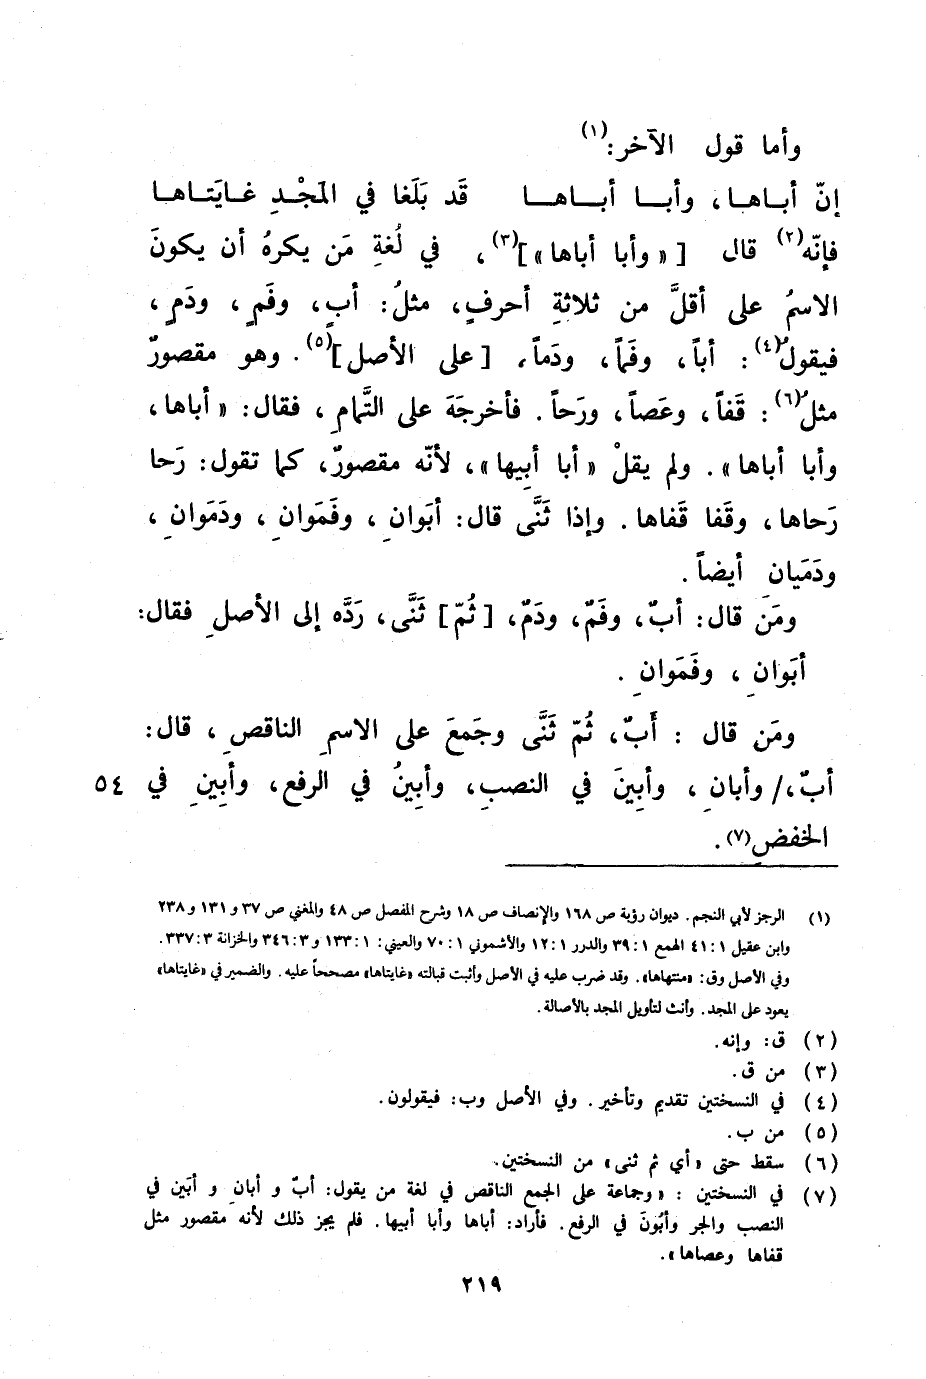 وأما قول الآخر:(١)
إنّ أبـاهـا، وأبـا أبـاهـا قَد بَلَغا في المَجْدِ غـايَتـاهـا
فإنّه(٢) قال [«وأبا أباها»](٣)، في لُغةِ مَن يكرهُ أن يكونَ
الاسمُ على أقلَّ من ثلاثةِ أحرفٍ، مثلُ: أبٍ، وفَمٍ، ودَمٍ،
فيقولُ(٤): أباً، وفَماً، ودَماً، [على الأصل](٥). وهو مقصورٌ
مثلُ(٦): قَفاً، وعَصاً، ورَحاً. فأخرجَهَ على التَّمامِ، فقال: «أباها،
وأبا أباها». ولم يقلْ «أبا أبِيها»، لأنّه مقصورٌ، كما تقول: رَحا
رَحاها، وقَفا قَفاها. وإذا ثَنَّى قال: أبَوانِ، وفَمَوانِ، ودَمَوانِ،
ودَمَيانِ أيضاً.
ومَن قال: أبٌ، وفَمٌ، ودَمٌ، [ثُمّ] ثَنَّى، رَدَّه إلى الأصلِ فقال:
أبَوانِ، وفَمَوانِ.
ومَن قال : أَبٌ، ثُمّ ثَنَّى وجَمعَ على الاسمِ الناقصِ، قال:
أبٌ،/ وأبانِ، وأبِينَ في النصبِ، وأبِينُ في الرفع، وأبِينِ في ٥٤
الخفضِ(٧).
(١) الرجز لأبي النجم. ديوان رؤبة ص ١٦٨ والإنصاف ص ١٨ وشرح المفصل ص ٤٨ والمغني ص ٣٧ و ١٣١ و ٢٣٨
وابن عقيل ١: ٤١ الهمع ١: ٣٩ والدرر ١: ١٢ والأشموني ١: ٧٠ والعيني: ١: ١٣٣ و ٣: ٣٤٦ والخزانة ٣: ٣٣٧.
وفي الأصل وق: «منتهاها». وقد ضرب عليه في الأصل وأثبت قبالته «غايتاها» مصححاً عليه. والضمير في «غايتاها»
يعود على المجد. وأنث لتأويل المجد بالأصالة.
(٢) ق: وإنه.
(٣) من ق.
(٤) في النسختين تقديم وتأخير. وفي الأصل وب: فيقولون.
(٥) من ب.
(٦) سقط حتى «أي ثم ثنى» من النسختين.
(٧) في النسختين : «وجماعة على الجمع الناقص في لغة من يقول: أبٌ و أبانِ و أبَين في
النصب والجر وأبُونَ في الرفع. فأراد: أباها وأبا أبيها. فلم يجز ذلك لأنه مقصور مثل
قفاها وعصاها».
٢١٩